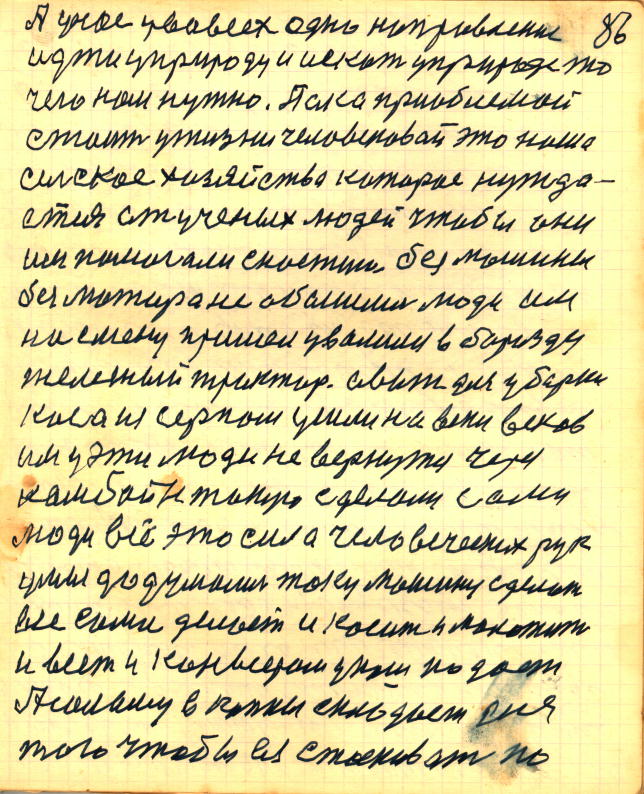 А у нас у во всех одно направление 86
идти у природу и искат у природе то
чего нам нужно. Пака приоблемой
стоит у жизни человековай это наша
силское хозяйство которое нужда-
ется от ученых людей чтобы они
им помогали скостии. без машины
без матира не люди им
на смену пришел у в борозду
железный трактор. а вот для уборки
коса и серпом ушли на веки веков
им у эти люди не вернутся через
камбайн такую сделали сами
люди всё это сила человеческих рук
умы додумалис таку машину сделат
все сама делает и косит и малотит
и веет и у подает
А салому в копны скла дает для
того чтобы ея стаскиват по